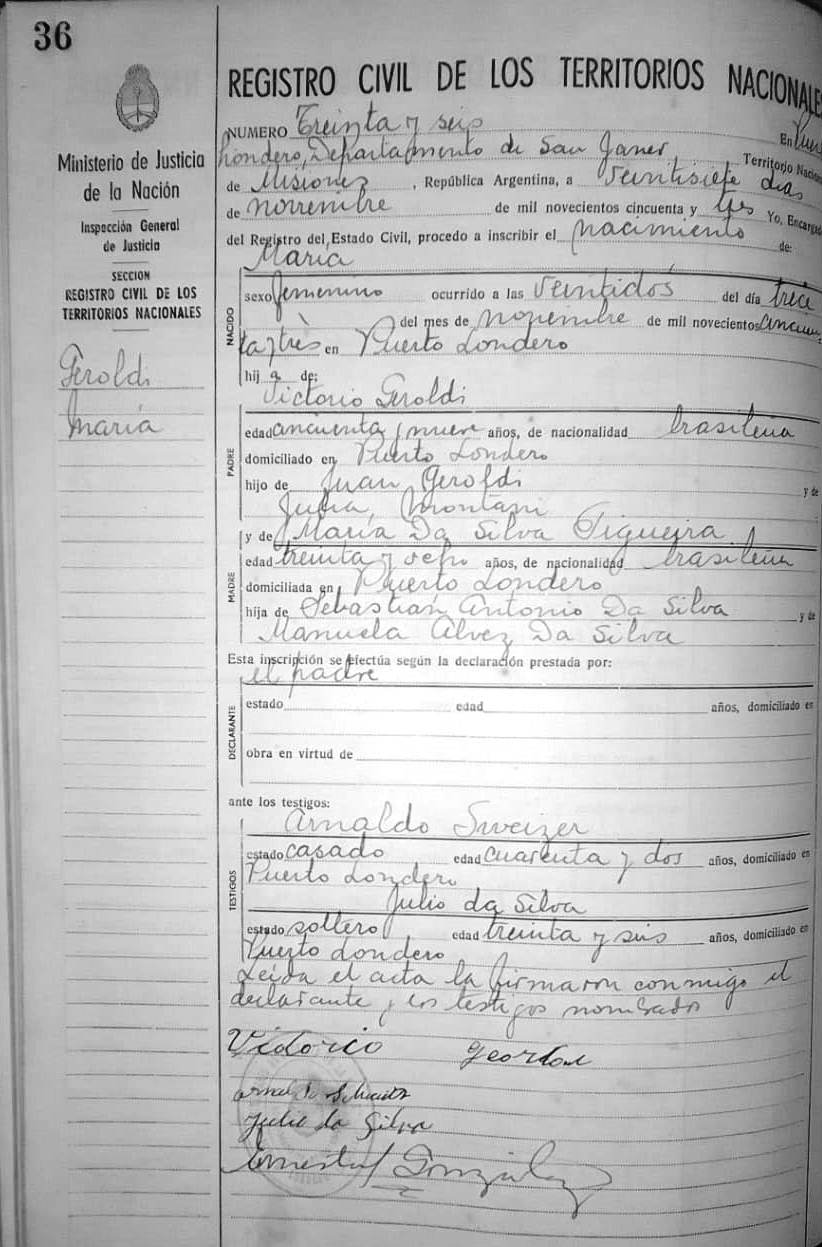 36
Ministerio de Justicia
de la Nación
Inspección General
de Justicia
SECCION
REGISTRO CIVIL DE LOS
TERRITORIOS NACIONALES
Geroldi
María
REGISTRO CIVIL DE LOS TERRITORIOS NACIONALES
NUMERO Treinta y seis En
Londero, Departamento de San Javier Territorio Nacional
de Misiones, República Argentina, a Veintisiete días
de noviembre de mil novecientos cincuenta y tres Yo, Encargado
del Registro del Estado Civil, procedo a inscribir el nacimiento de:
María
NACIDO
sexo femenino ocurrido a las Veintidós del día trece
del mes de noviembre de mil novecientos cincuen
ta y tres en Puerto Londero
hij a de:
Victorio Geroldi
PADRE
edad cincuenta y nueve años, de nacionalidad brasileña
domiciliado en Puerto Londero
hijo de Juan Geroldi y de
Julia Montani
MADRE
y de María Da Silva Figueira
edad treinta y años, de nacionalidad brasileña
domiciliada en Puerto Londero
hija de Sebastian Antonio Da Silva y de
Manuela Alvez Da Silva
Esta inscripción se efectúa según la declaración prestada por:
el padre
DECLARANTE
estado edad años, domiciliado en
obra en virtud de
ante los testigos:
Arnaldo Sweizer
TESTIGOS
estado casado edad cuarenta y dos años, domiciliado en
Puerto Londero
Julio da Silva
estado soltero edad treinta y seis años, domiciliado en
Puerto Londero
Leída el acta la firmaron conmigo el
declarante y los testigos nombrados
Vidorico
Julio da Silva
Ernesto González